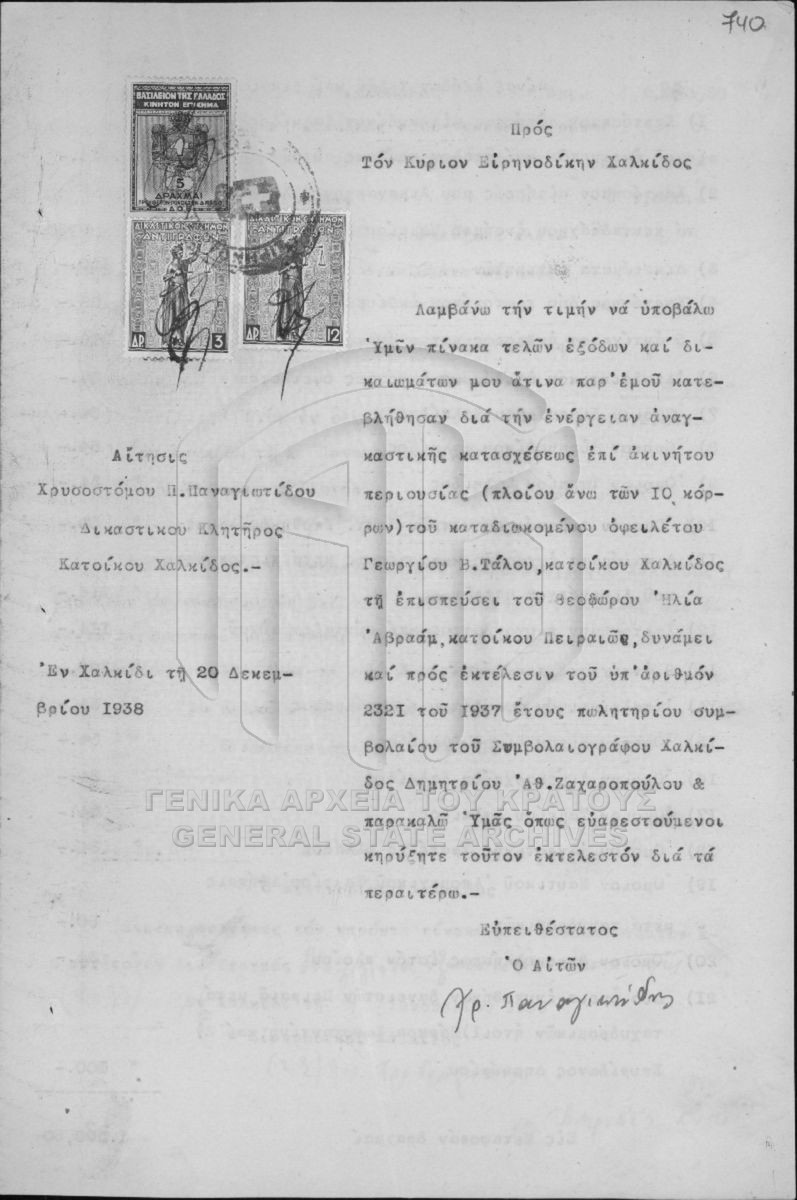 740
ΒΑΣΙΛΕΙΟΝ ΤΗΣ ΕΛΛΑΔΟΣ
ΚΙΝΗΤΟΝ ΕΠΙΣΗΜΑ
5
ΔΡΑΧΜΑΙ
ΑΝΤΙΓΡΑΦΩΝ
ΔΡ 3
ΑΝΤΙΓΡΑΦΩΝ
ΔΡ 12
Πρός
Τόν Κύριον Εἰρηνοδίκην Χαλκίδος
Αἴτησις
Χρυσοστόμου Π.Παναγιωτίδου
Δικαστικοῦ Κλητῆρος
Κατοίκου Χαλκίδος.-
Ἐν Χαλκίδι τῇ 20 Δεκεμ-
βρίου 1938
Λαμβάνω τήν τιμήν νά ὑποβάλω
Ὑμῖν πίνακα τελῶν ἐξόδων καί δι-
καιωμάτων μου ἅτινα παρ'ἐμοῦ κατε-
βλήθησαν διά τήν ἐνέργειαν ἀναγ-
καστικῆς κατασχέσεως ἐπί ἀκινήτου
περιουσίας (πλοίου ἄνω τῶν 10 κόρ-
ρων)τοῦ καταδιωκομένου ὀφειλέτου
Γεωργίου Β.Τάλου,κατοίκου Χαλκίδος
τῇ ἐπισπεύσει τοῦ Θεοδώρου Ἠλία
Ἀβραάμ,κατοίκου Πειραιῶς,δυνάμει
καί πρός ἐκτέλεσιν τοῦ ὑπ'ἀριθμόν
2321 τοῦ 1937 ἔτους πωλητηρίου συμ-
βολαίου τοῦ Συμβολαιογράφου Χαλκί-
δος Δημητρίου Ἀθ.Ζαχαροπούλου &
παρακαλῶ Ὑμᾶς ὅπως εὐαρεστούμενοι
κηρύξητε τοῦτον ἐκτελεστόν διά τά
περαιτέρω.-
Εὐπειθέστατος
Ὁ Αἰτῶν
Χρ. Παναγιωτίδης
ΓΕΝΙΚΑ ΑΡΧΕΙΑ ΤΟΥ ΚΡΑΤΟΥΣ
GENERAL STATE ARCHIVES